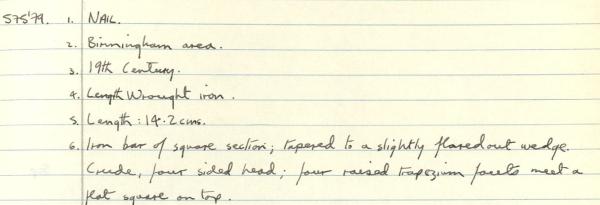 575'79. 1. NAIL.
2. Birmingham area.
3. 19th Century.
4. Length Wrought iron.
5. Length: 14.2cms.
6. Iron bar of square section; tapered to a slightly flared out wedge.
Crude, four sided head; four raised trapezium facets meet a
flat square on top.